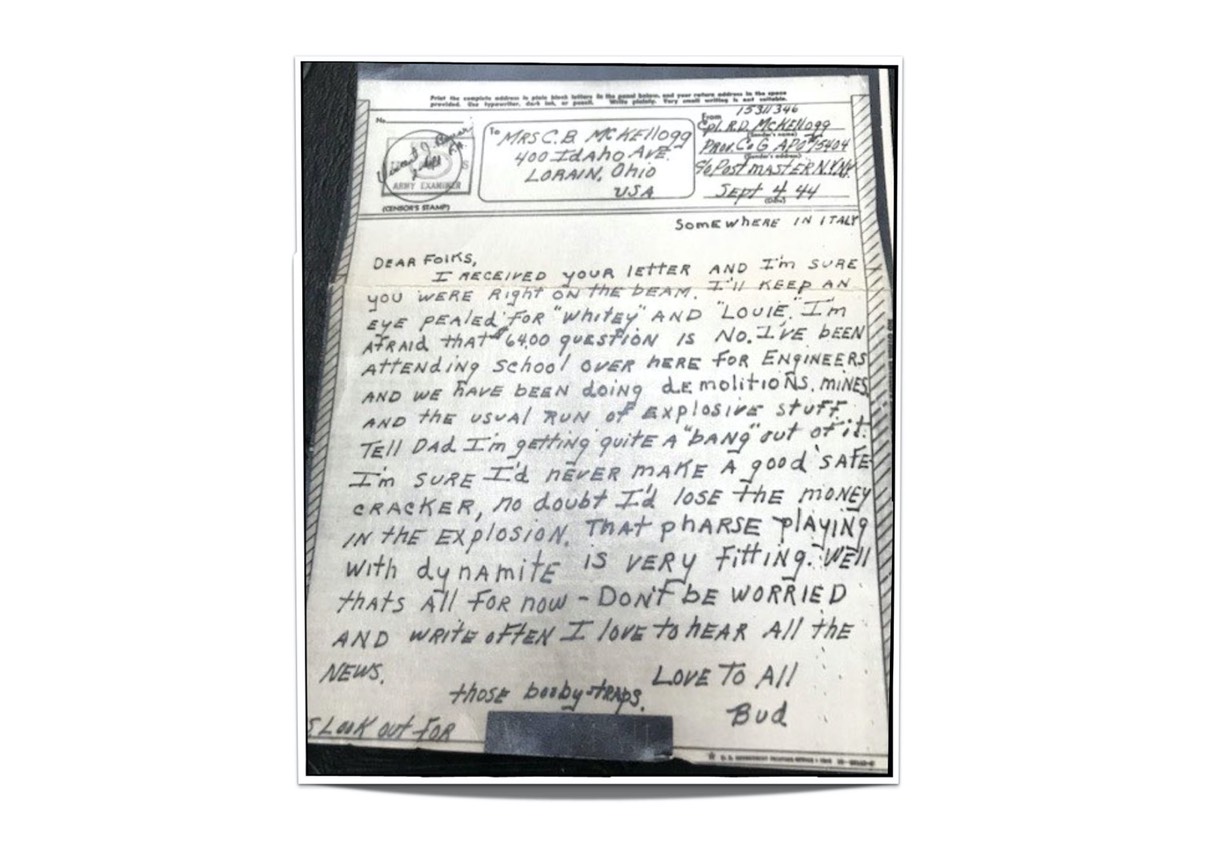 Print the complete address in plain block letters in the panel below, and your return address in the space
provided. Use typewriter, dark ink, or pencil. Write plainly. Very small writing is not suitable.
No.
ARMY EXAMINER
(CENSOR'S STAMP)
To MRS C.B. MCKEllogg
400 IdAho AVE.
LORAIN, Ohio
USA
From 15311346
Cpl. R.D. MCKEllogg
(Sender's name)
PROV. Co G APO #15404
(Sender's address)
c/o PostmASTER N.Y.N.Y.
Sept 4 44
(Date)
SomEWhERE IN ITALY
DEAR FolKS,
I RECEIVED YOUR lETTER AND I'm SURE
you WERE Right ON thE bEAM. I'll KEEP AN
EYE PEAlEd FOR "WhitEy" AND "LOUIE." I'm
AFRAID thAt $6400 QUESTION IS NO. I'VE BEEN
ATTENDING School OVER hERE FOR ENGINEERS
AND WE hAVE BEEN doing dEmolitioNS, miNES,
AND thE USUAl RUN of EXplosivE STUFF.
TEll DAd I'm gEtting quitE A "bANg" out of it.
I'm SURE I'd NEVER MAKE A good SAFE
CRACKER, no doubt I'd losE thE moNEY
IN thE EXplosioN. ThAT phARSE plAYiNg
With dyNAmitE IS VERY Fitting. WEll
thAts All FOR now - DoN't bE WORRIED
AND WRITE oFTEN I lovE to hEAR All thE
NEWS.
LovE To All
Bud
S Look out FOR
thosE booby-tRAPS.